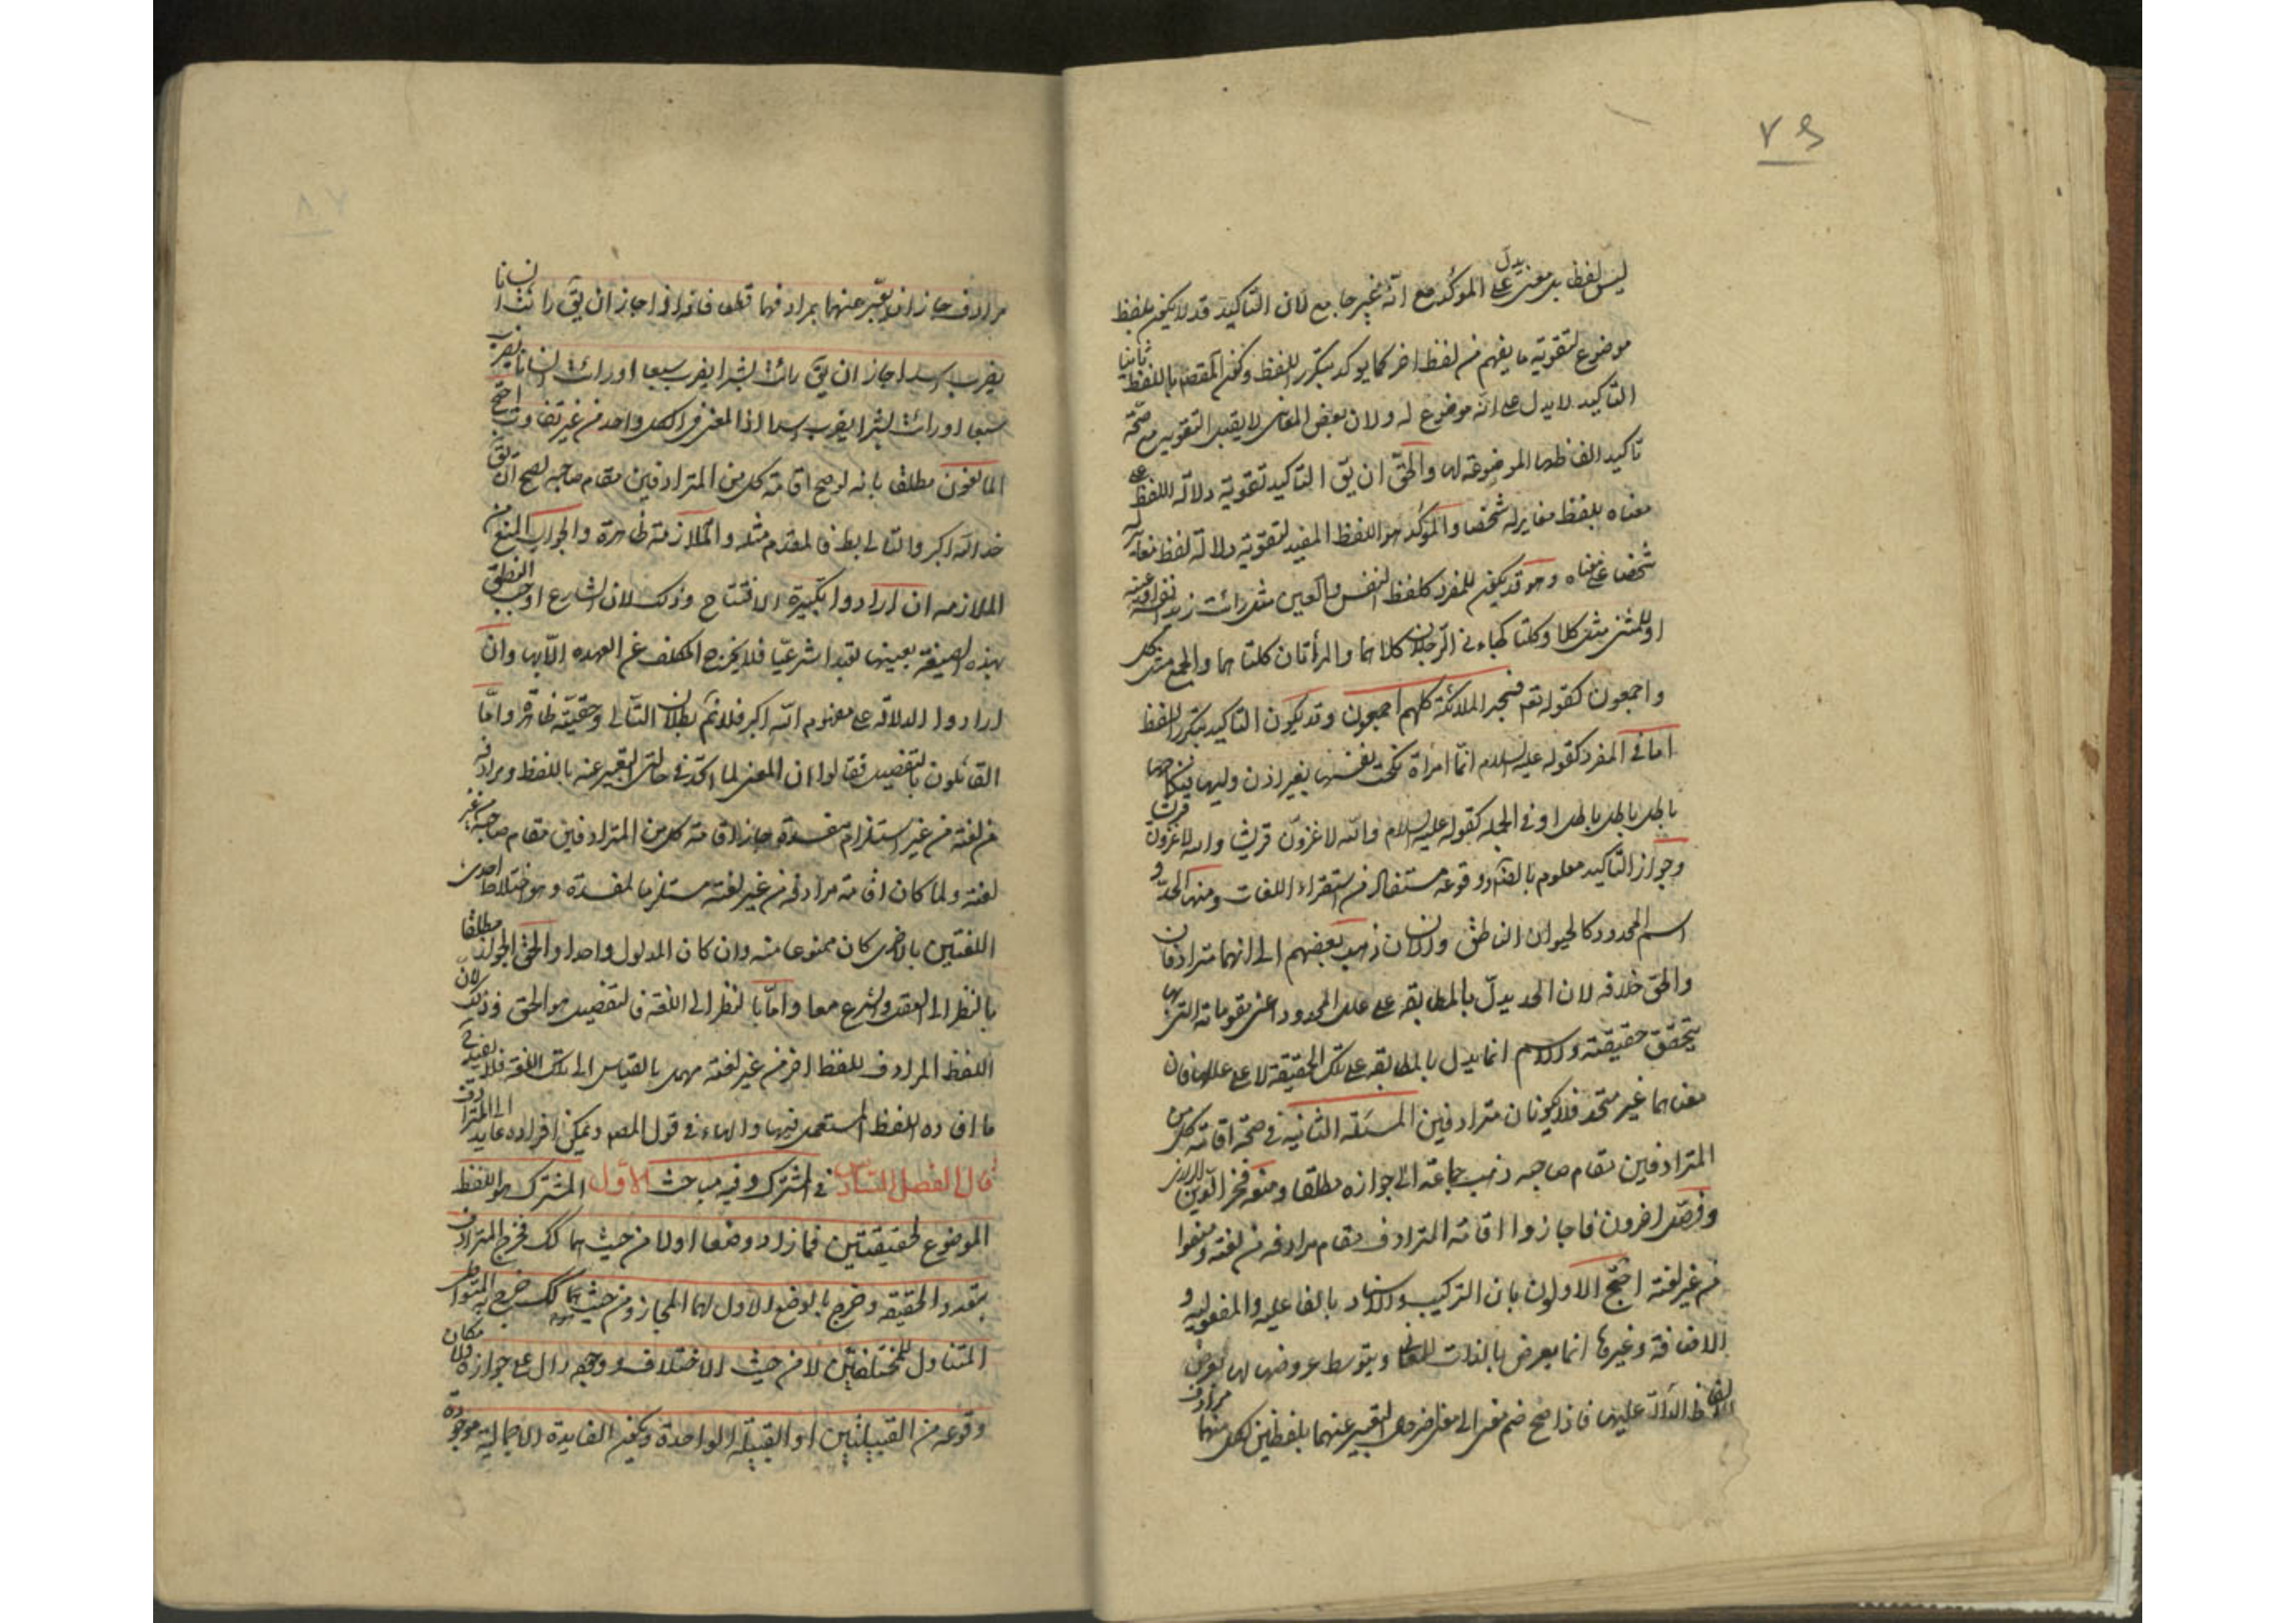 ٧٩
ليس لفظ بل معنى يدل على المؤكد مع انه غير جامع لان التاكيد قد لا يكون بلفظ
موضوع لتقوية ما يفهم من لفظ اخر كما يؤكد بتكرر اللفظ وكون المقصد باللفظ ثانيا
التاكيد لا يدل على انه موضوع له ولان بعض المعانى لا يقبل التقوية مع صحة
تاكيد الفاظها الموضوعة لها والحق ان يق التاكيد تقوية دلالة اللفظ على
معناه بلفظ مغاير له شخصا والمؤكد هو اللفظ المفيد لتقوية دلالة لفظ مغاير له
شخصا على معناه وهو قد يكون للمفرد كلفظ النفس والعين مثل رائت زيدا نفسه او عينه
او للمثنى مثل كلا وكلتا كما فى الرجلان كلاهما والمرأتان كلتاهما والجمع مثل كل
واجمعون كقوله تعم فسجد الملائكة كلهم اجمعون وقد يكون التاكيد بتكرر اللفظ
اما فى المفرد كقوله عليه السلام انما امرأة نكحت نفسها بغير اذن وليها فنكاحها
باطل باطل باطل او فى الجملة كقوله عليه السلام والله لاغزون قريشا والله لاغزون قريشا
وجواز التاكيد معلوم بالضرورة ووقوعه مستفاد من استقراء اللغات ومنها الحد و
اسم المحدود كالحيوان الناطق والانسان ذهب بعضهم الى انهما مترادفان
والحق خلافه لان الحد يدل بالمطابقة على علل المحدود اعنى مقوماته التى بها
يتحقق حقيقته والاسم انما يدل بالمطابقة على تلك الحقيقة لا على عللها فان
معناهما غير متحد فلا يكونان مترادفين المسئلة الثانية فى صحة اقامة كل من
المترادفين مقام صاحبه ذهب جماعة الى جوازه مطلقا ومنعه فخر الدين الرازى
وفصل اخرون فاجازوا اقامة المترادف مقام مرادفه من لغته ومنعوا
من غير لغته احتج الاولون بان التركيب والاسناد بالفاعلية والمفعولية و
الاضافة وغيرها انما يعرض بالذات للمعانى وبتوسط عروضها لها يعرض
للالفاظ الدالة عليها فاذا صح ضم معنى الى معنى اخر حال التعبير عنهما بلفظين لكل منهما مرادف
٧٨
مرادف جاز ان يعبر عنهما بمرادفهما قطعا فانه اذا جاز ان يق رائت انسانا
يضرب اسدا جاز ان يق رائت بشرا يضرب سبعا او رائت انسانا يضرب
سبعا او رائت بشرا يضرب اسدا اذ المعنى فى الكل واحد من غير تفاوت احتج
المانعون مطلقا بانه لو صح اقامة كل من المترادفين مقام صاحبه لصح ان يق
خداى اكبر والتالى بط فالمقدم مثله والملازمة ظاهرة والجواب المنع من
الملازمة ان ارادوا تكبيرة الافتتاح وذلك لان الشارع اوجب النطق
بهذه الصيغة بعينها تعبدا شرعيا فلا يخرج المكلف عن العهدة الا بها وان
ارادوا الدلالة على مفهوم الله اكبر فلا نم بطلان التالى وحقيته ظاهرة واما
القائلون بالتفصيل فقالوا ان المعنى لما اتحد فى حالتى التعبير عنه باللفظ ومرادفه
من لغته من غير استلزام مفسدة جاز اقامة كل من المترادفين مقام صاحبه من غير
لغته ولما كان اقامة مرادفه من غير لغته مستلزما لمفسدة وهو اختلاط احدى
اللغتين بالاخرى كان ممنوعا منه وان كان المدلول واحدا والحق الجواز مطلقا
بالنظر الى العقل والشرع معا واما بالنظر الى اللغة فالتفصيل هو الحق وذلك لان
اللفظ المرادف للفظ اخر من غير لغته مهمل بالقياس الى تلك اللغة فلا يفيد فى
ما افاده اللفظ المستعمل فيها والهاء فى قول المصم ويمكن افراده عايد الى المترادف
قال الفصل السادس فى المشترك وفيه مباحث الاول المشترك هو اللفظ
الموضوع لحقيقتين فما زاد وضعا اولا من حيث هما كك فخرج المترادف
بتعدد الحقيقة وخرج بالوضع الاول لهما المجاز ومن حيث هما كك خرج به المتواطى
المتناول للمختلفتين لا من حيث الاختلاف ووجه دال على جوازه ولا مكان
وقوعه من القبيلتين او القبيلة الواحدة ويكون الفايدة الاجمالية موجودة